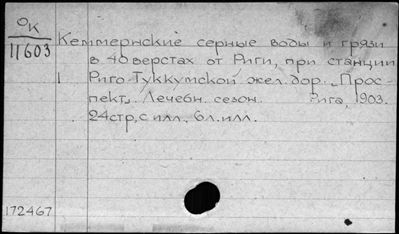 ОК
11603
Кеммернские серные воды и грязи
в 40 верстах от Риги, при станции
1 Риго-Туккумской жел. дор. Прос-
пект. Лечебн. сезон. Рига, 1903.
24стр., с илл. 6л. илл.
172467